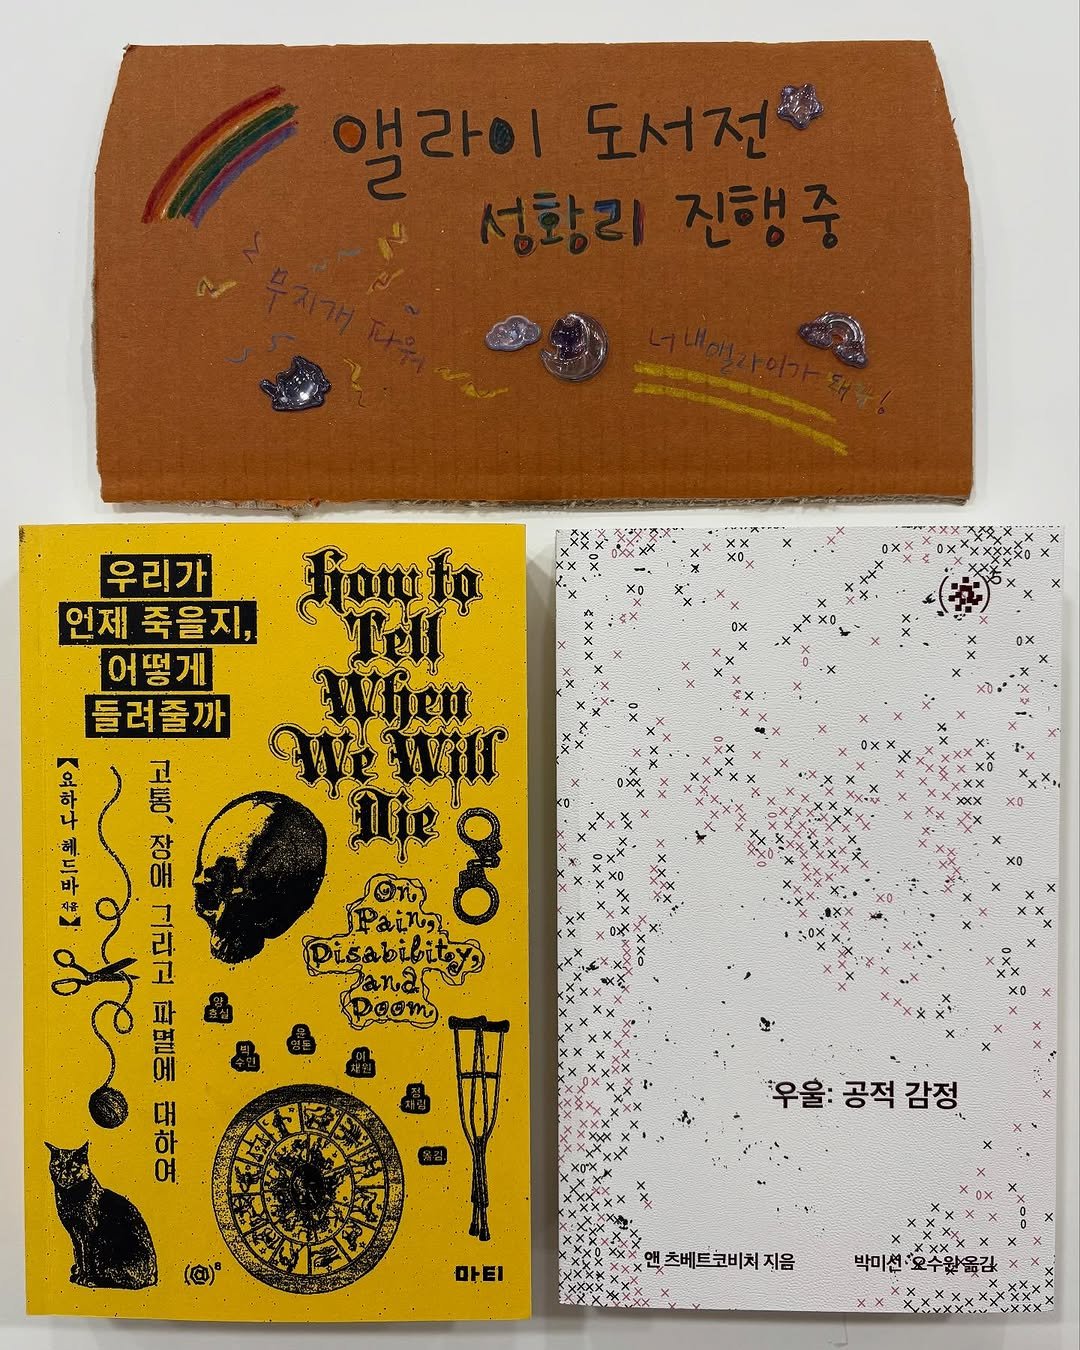 앨라이 도서전
성황리 진행중
무지개 파워
너 내 앨라이가 돼라!
우리가
언제 죽을지,
어떻게
들려줄까
How to
Tell
When
We Will
Die
【요하나 헤드바 지음】
고통, 장애 그리고 파멸에 대하여
On
Pain,
Disability,
and
Doom
양효실
박수연
윤영돈
이채원
정채림
옮김
(@)⁸
마티
(@)⁵
우울: 공적 감정
앤 츠베트코비치 지음
박미선·오수원 옮김